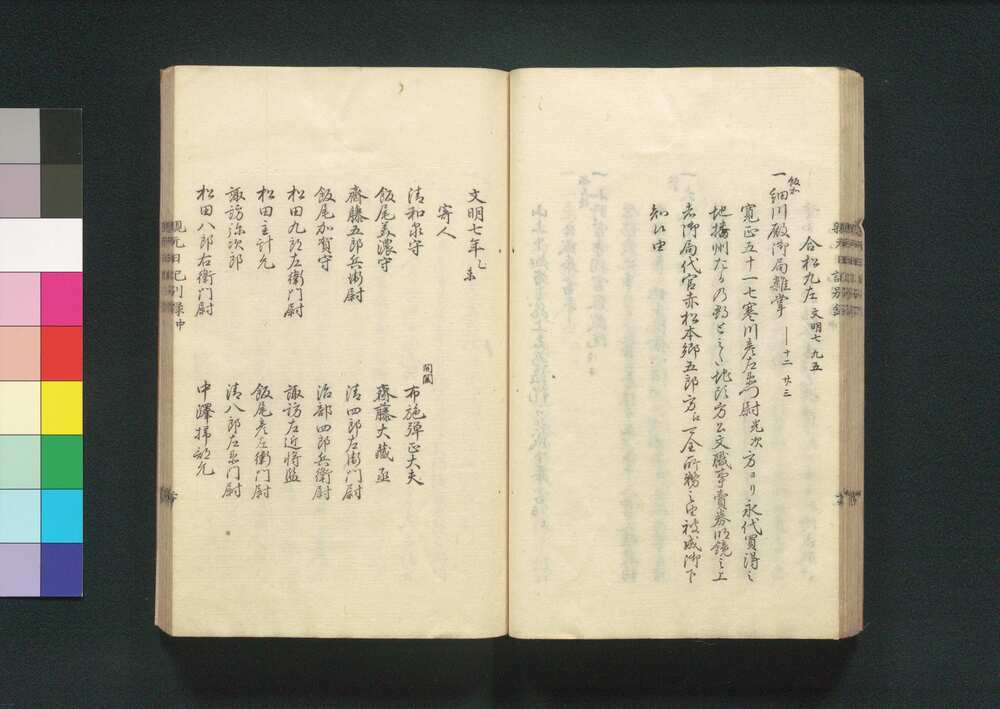 合松九左 文明七 九五
一細川殿御局雑掌 ── 十二 廿三
寛正五十一七寒川彦左衛門尉光次方ヨリ永代買得之
地播州たかの郡とミ地頭方公文職事売券明鏡之上
者御局代官赤松本郷五郎方ニ可全所務之由被成御下
知候由
文明七年乙未
寄人
清和泉守
飯尾美濃守
斎藤五郎兵衛尉
飯尾加賀守
松田九郎左衛門尉
松田主計允
諏訪弥次郎
松田八郎右衛門尉
開闔
布施弾正大夫
斎藤大蔵丞
清四郎左衛門尉
治部四郎兵衛尉
諏訪左近将監
飯尾彦左衛門尉
清八郎左衛門尉
中澤掃部允
親元日記別録中